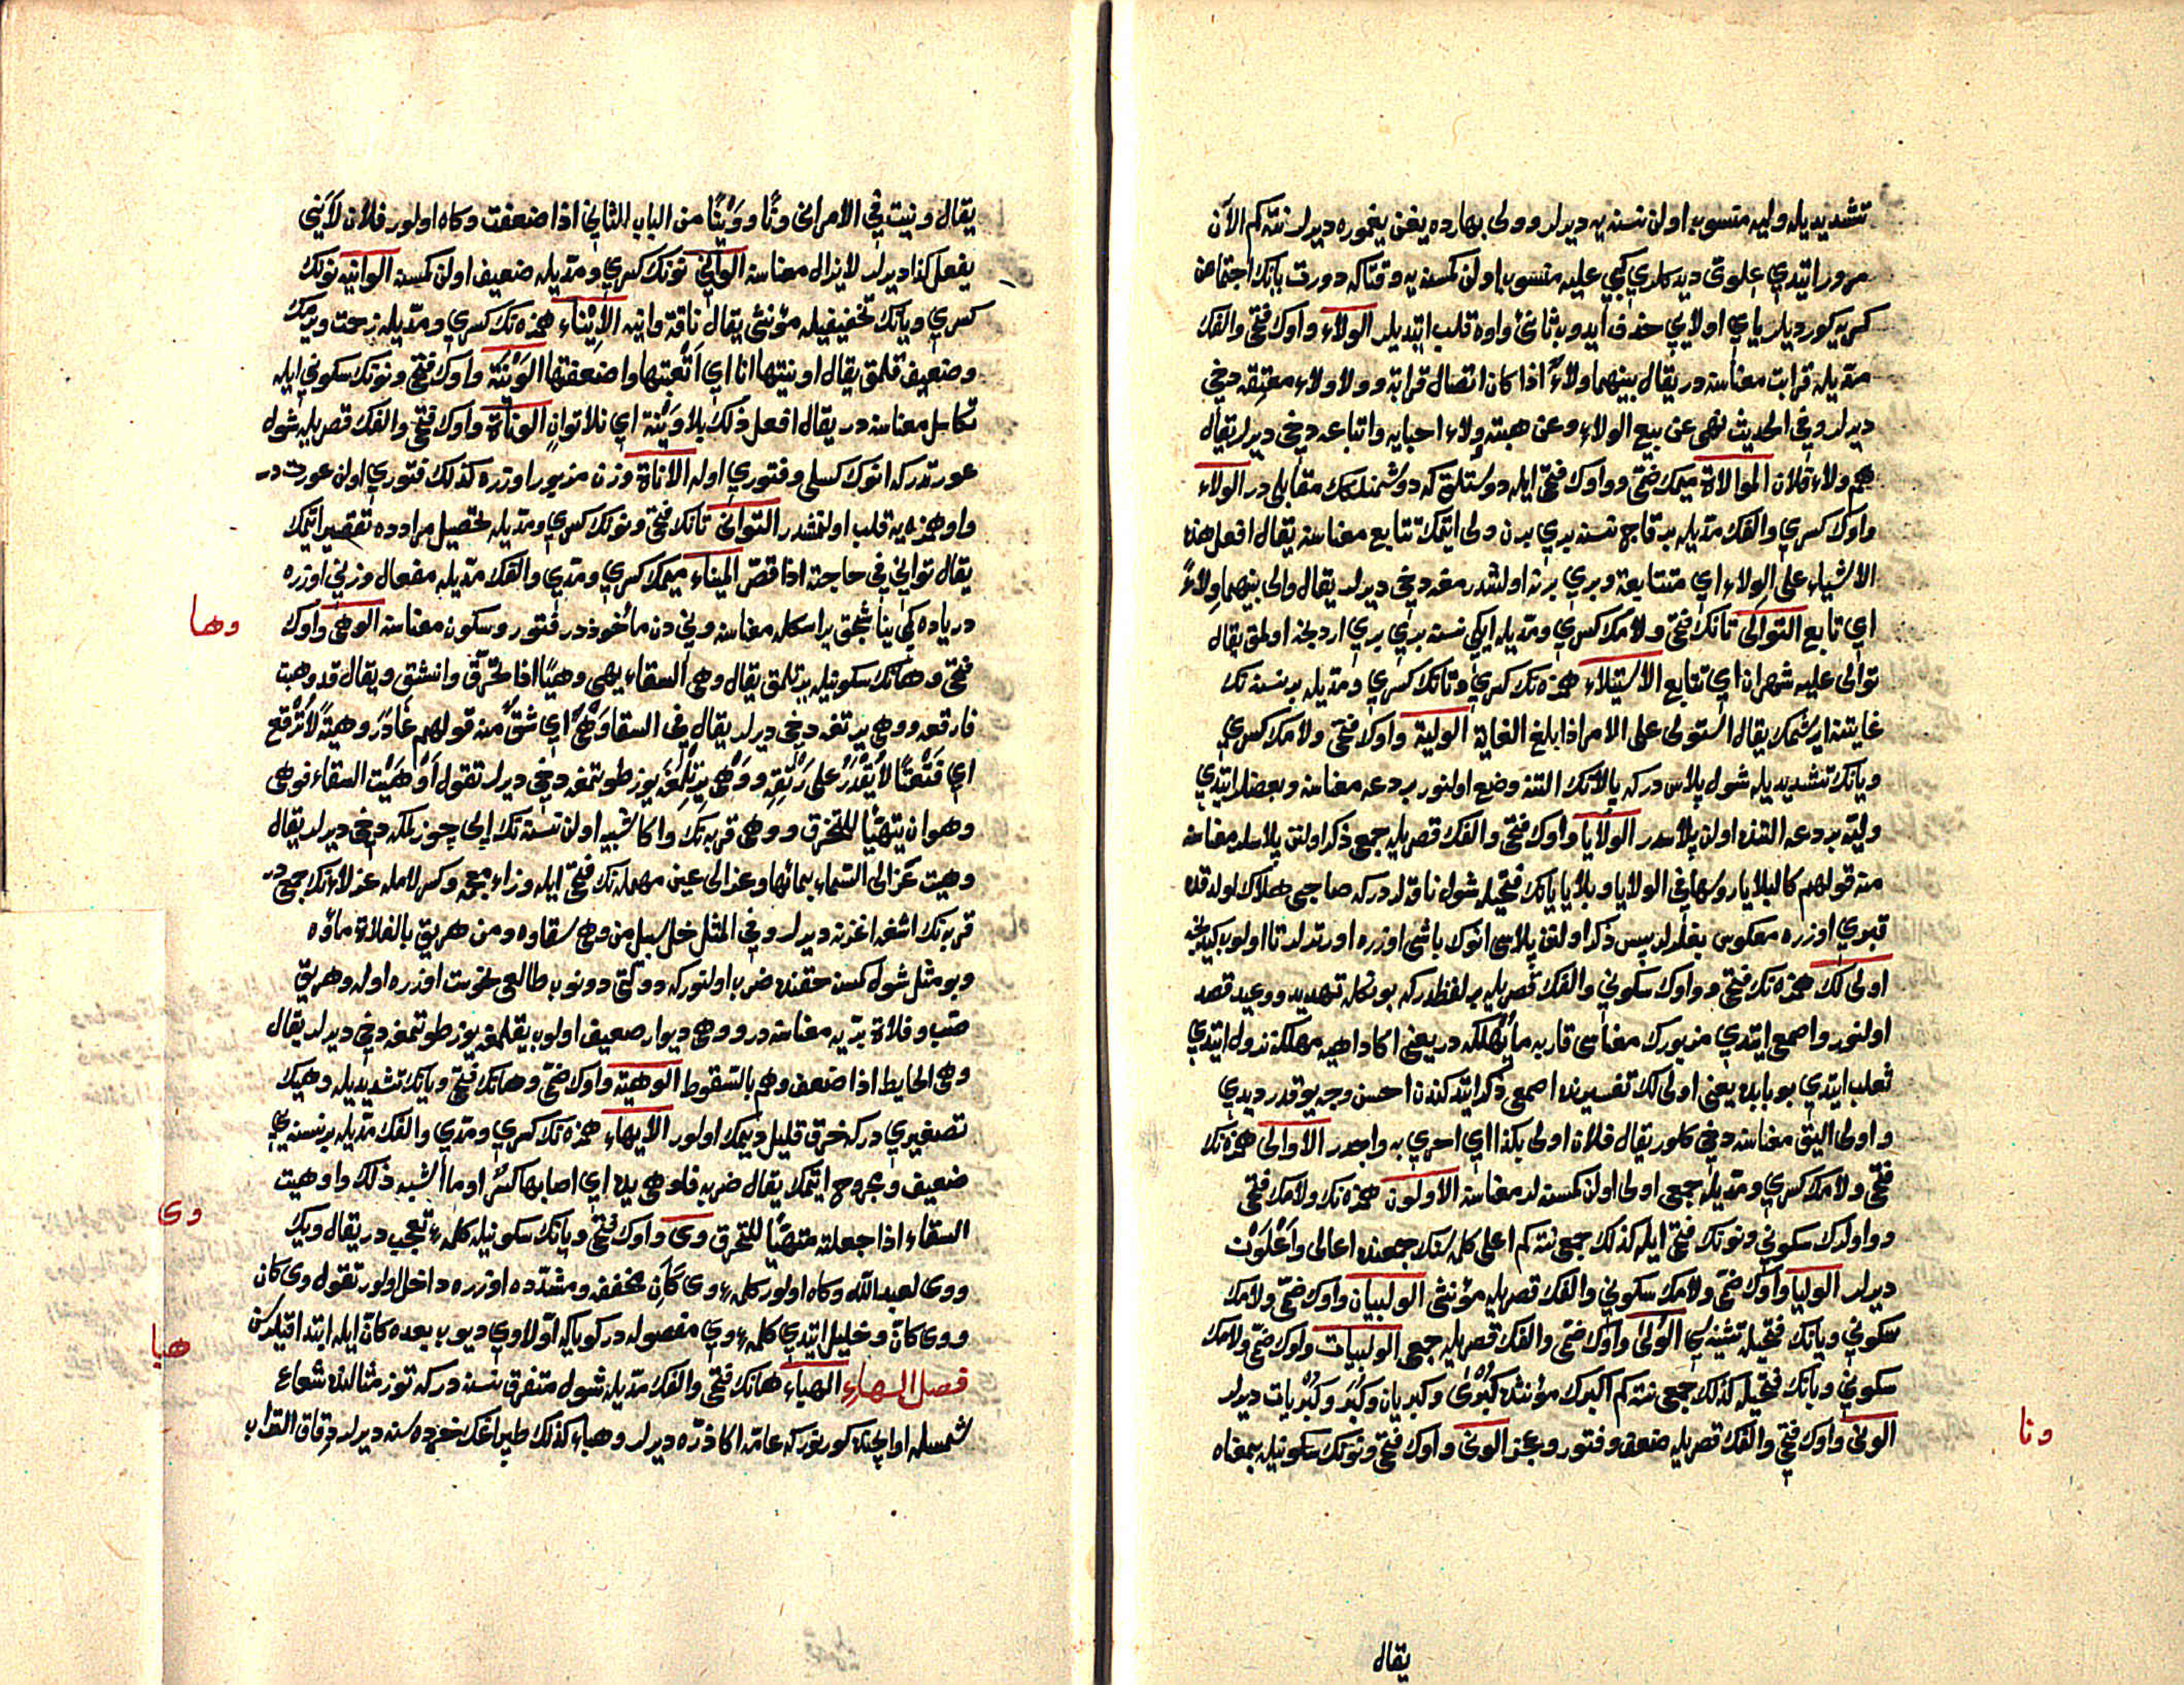 تشديديله وليه منسوب اولن نسنه يه ديرلر و ولى بهارده يغن يغموره ديرلر نته كم الآن
مرور ايتدي علوى ديدكلري كبي عليه منسوب اولن كمسنه يه وقتاكه دورت يانك اجتماعن
كريه كورديلر ياي اولايي حذف ايدوب ثانئ واوه قلب ايتديلر الولاء واوك فتحى والفك
مدّيله قرابت معناسنه در يقال بينهما ولاءٌ اذا كان اتصال قرابة و ولا ولاء معتقه دخي
ديرلر وفي الحديث نهى عن بيع الولاء وعن هبته ولاء احبايه واتباعه دخي ديرلر يقال
هم ولاء فلان الموالاة ميمك ضمّى و واوك فتحى ايله دوستلق كه دوشمنلكك مقابلى در الولاء
واوك كسري والفك مدّيله بر قاج نسنه بري برن ولى ايتمك تتابع معناسنه يقال افعل هذه
الاشياء على الولاء اي متتابعة وبري برنه اولشدرمغه دخي ديرلر يقال والى بينهما ولاءً
اي تابع التوالى تانك فتحى ولامك كسري ومدّيله ايكى نسنه بري بري اردنجه اولمق يقال
توالى عليه شهران اي تتابع الاستيلاء همزه نك كسري وتانك كسري ومدّيله بر نسنه نك
غايتنه ايرشمك يقال استولى على الامر اذا بلغ الغاية الولية واوك فتحى ولامك كسري
ويانك تشديديله شول پلاس دركه پالانك التنه وضع اولنور بردعه معناسنه وبعضلر ايتدي
وليّه بردعه التنده اولن پلاسدر الولايا واوك فتحى والفك قصريله جمعى ذكر اولنن پلاسلر معناسنه
منه قولهم كالبلايا روسها في الولايا و بلايا يانك فتحيله شول ناقه لردركه صاحبى هلاك اولدقده
قبري اوزره معكوس بغلرلر پس ذكر اولنن پلاسى انوك باشى اوزره اورتدلر تا اولوب كيدنجه
اولى لك همزه نك فتحى و واوك سكوني والفك قصريله بر لفظدركه بونكله تهديد و وعيد قصد
اولنور واصمعى ايتدي مزبورك معناسى قاربه ما يهلكه در يعنى اكا داهيه مهلكه نزول ايتدي
ثعلب ايتدي بو بابده يعنى اولى لك تفسيرنده اصمعى ذكر ايتدكندن احسن وجه يوقدر ديدي
و اولى اليق معناسنه دخي كلور يقال فلان اولى بكذا اي احرى به واجدر الاوالى همزه نك
فتحى ولامك كسري ومدّيله جمعى اولى اولن كمسنه لر معناسنه الاولون همزه نك ولامك فتحى
و واولرك سكوني ونونك فتحى ايله كذلك جمعى نته كم اعلى كلمه سنك جمعنده اعالى واَعْلَوْن
ديرلر الوليا واوك ضمّى ولامك سكوني والفك قصريله مؤنثى الولييان واوك ضمّى ولامك
سكوني ويانك فتحيله تثنيه سي الوُلى واوك ضمّى والفك قصريله جمعى الولييات واوك ضمّى ولامك
سكوني ويانك فتحيله كذلك جمعى نته كم اكبرك مؤنثنده كُبْرى وكبريان وكُبَر وكُبْريات ديرلر
الونى واوك فتحى والفك قصريله ضعف وفتور وعجز الونى واوك فتحى ونونك سكونيله بمعناه
ونا
يقال
يقال ونيت في الامر انى ونًا و وَنْيًا من الباب الثاني اذا ضعفت وكاه اولور فلان لا يَنِي
يفعل كذا ديرلر لا يزال معناسنه الوانى نونك كسري ومدّيله ضعيف اولن كمسنه الوانيه نونك
كسري ويانك تخفيفيله مؤنثى يقال ناقة وانيه الاِيْناء همزه نك كسري ومدّيله زحمت ويرمك
وضعيف قلمق يقال اونيتها انا اي اَتعبتها واضعفتها الوَنْيَة واوك فتحى ونونك سكوني ايله
تكاسل معناسنه در يقال افعل ذلك بلا وَنْيَة اي بلا توانٍ الوناة واوك فتحى والفك قصريله شول
عورتدركه انوك كسلى وفتوري اوله الاناة وزن مزبور اوزره كذلك فتوري اولن عورتدر
واو همزه يه قلب اولنمشدر التوانى تانك فتحى ونونك كسري ومدّيله تحصيل مراده تقصير ايتمك
يقال توانى في حاجته اذا قصّر الميناء ميمك كسري ومدّي والفك مدّيله مفعال وزني اوزره
درياده كمى يناشجق ير اسكله معناسنه وني دن مأخوذدر فتور وسكون معناسنه الوهى واوك
وها
فتحى وهانك سكونيله يرتلمق يقال وهى السقاء يهى وهيًا اذا تخرّق وانشق ويقال قد وهيت
فارقعه و وهى يرتغه دخي ديرلر يقال في السقا وَهْىٌ اي شقٌّ منه قولهم غادَرَ وهيةً لا تُرْقَع
اي فَتَقًا لا يُقْدَرُ على رَتْقِه و وَهْى يرتلمغه يوز طوتمغه دخي ديرلر تقول اَوْهَيْت السقاء فوهى
وهو ان يتهيّأ للتخرّق و وهى قربه نك واكا شبيه اولن نسنه نك ايپى چوزلمكه دخي ديرلر يقال
وهيت عَزالى السّماء بمائها وعزالى عين مهمله نك فتحى ايله وزاء معجمه وكسر لامله عزلاءنك جمعيدر
قربه نك اشغه اغزنه ديرلر وفي المثل خل سبيل من وهى سقاوه ومن هريق بالفلاة ماؤه
وبو مثل شول كمسه حقنده ضرب اولنوركه دولتى دونوب طالعى نحوست اوزره اوله وهريق
صبّ وفلاة برّيه معناسنه در و وهى ديوار ضعيف اولوب يقلمغه يوز طوتمغه دخي ديرلر يقال
وهى الحايط اذا ضعف وهم بالسّقوط الوهية واوك ضمّى وهانك فتحى ويانك تشديديله وهينك
تصغيري دركه خرق قليل ديمك اولور الايهاء همزه نك كسري ومدّي والفك مدّيله بر نسنه يي
ضعيف ومجروح ايتمك يقال ضربه فاوهى يده اي اصابها كسرٌ او ما اشبه ذلك واوهيت
السقاء اذا جعلته متهيّأً للتخرق وى واوك فتحى ويانك سكونيله كلمۀ تعجب در يقال ويك
وى
و وى لعبد الله وكاه اولور كلمۀ وى كَاَن مخفف ومشدّده اوزره داخل اولور تقول وى كان
و وى كانّ وخليل ايتدي كلمۀ وي مفصوله در كويا كه اوّلا وي ديوب بعده كانّ ايله ابتدا قيلدك
فصل الهاء الهباء هانك فتحى والفك مدّيله شول متفرق نسنه دركه توز مثالنده شعاع
هبا
شمسله اوايچنده كورينوركه عامّه اكا ذرّه ديرلر وهباء كذلك طپراغك خرده سنه ديرلر دِقاق التراب